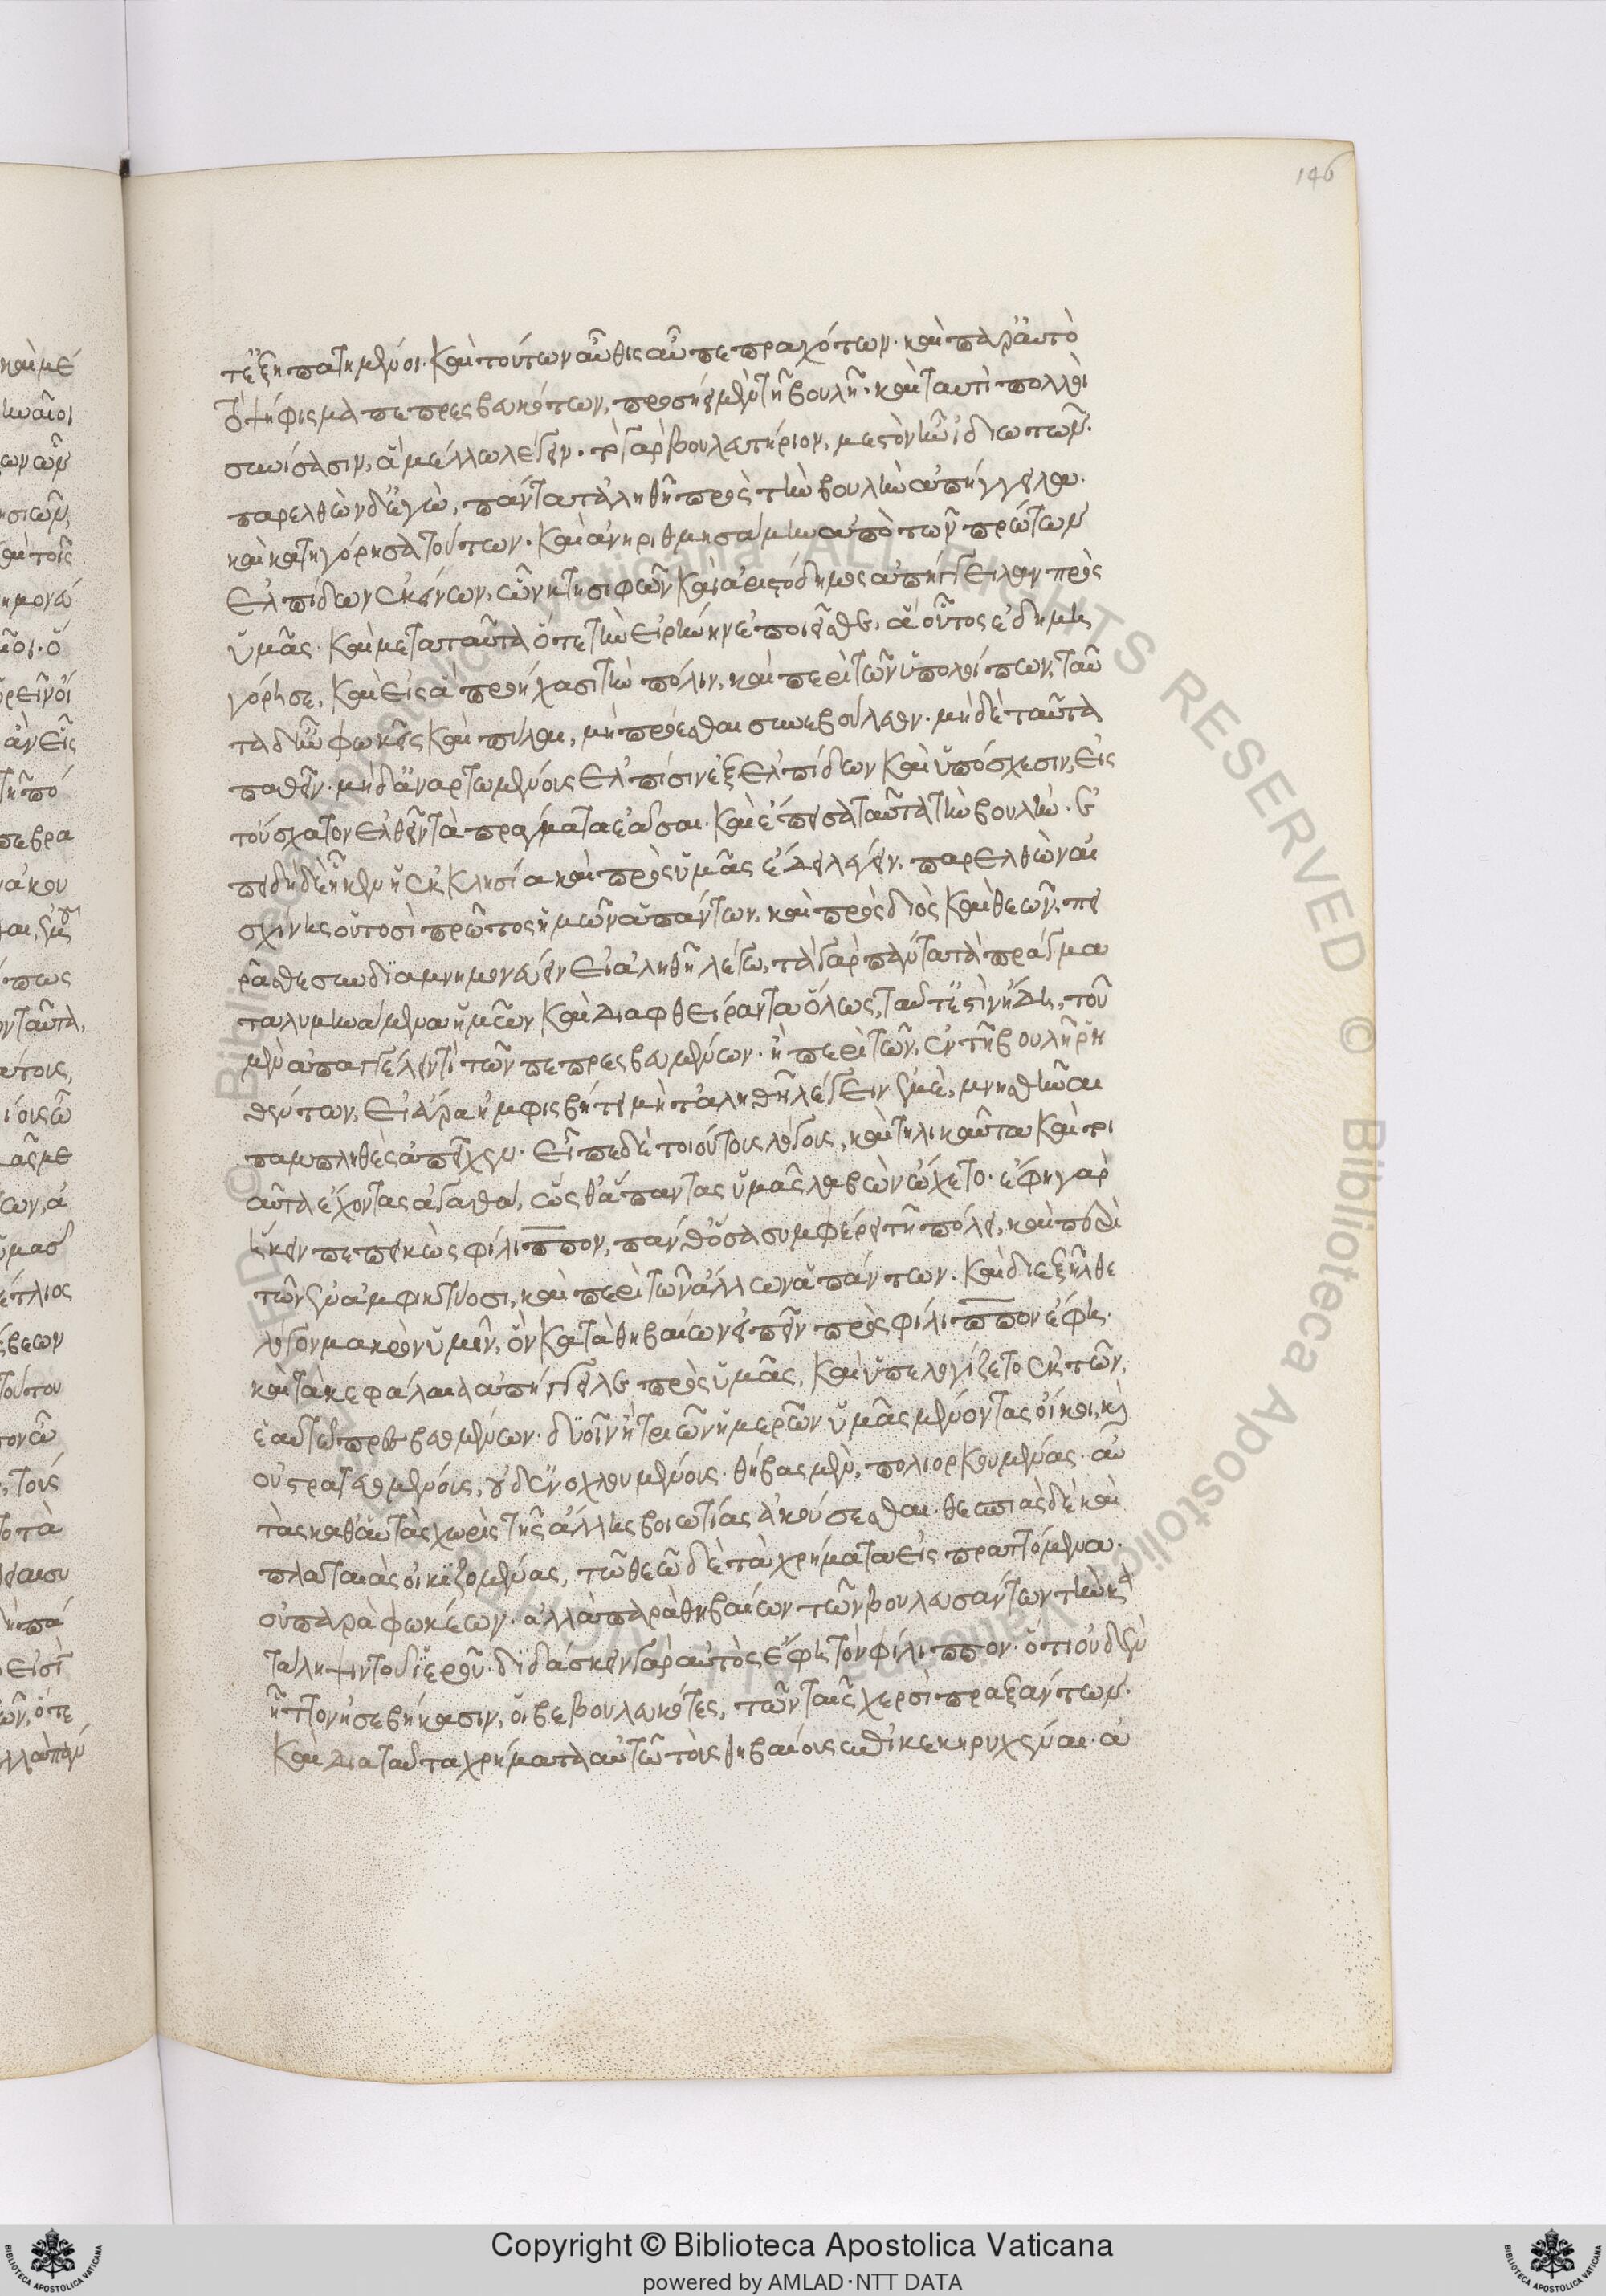 146
τ' ἐξηπατημένοι· καὶ τούτων αὖθις αὖ πεπραχότων· καὶ παρ' αὐτὸ
τὸ ψήφισμα πεπρεσβευκότων, προσῆιμεν τῆ βουλῆ· καὶ ταυτὶ πολλοὶ
συνίσασιν, ἃ μέλλω λέγειν· τὸ γὰρ βουλευτήριον, μεστὸν ἦν ἰδιωτῶν·
παρελθὼν δ' ἐγὼ, πάντα τἀληθῆ πρὸς τὴν βουλὴν ἀπήγγειλα·
καὶ κατηγόρησα τούτων· καὶ ἀνηριθμησάμην ἀπὸ τῶν πρώτων
ἐλπίδων ἐκείνων, ὧν κτησιφῶν καὶ ἀριστόδημος ἀπήγγειλαν πρὸς
ὑμᾶς· καὶ μετὰ ταῦτα ὅτε τὴν εἰρήνην ἐποιεῖσθε, ἃ οὗτος ἐδημη
γόρησε, καὶ εἰς ἃ προήχασι τὴν πόλιν, καὶ περὶ τῶν ὑπολοίπων, ταῦ
τα δ' ἦν φωκεῖς καὶ πύλαι, μὴ προέσθαι συνεβούλευον· μηδὲ ταῦτα
παθεῖν· μηδ' ἀναρτωμένους ἐλπίσιν ἐξ ἐλπίδων καὶ ὑπόσχεσιν, εἰς
τοὔσχατον ἐλθεῖν τὰ πράγματα ἐᾶσαι· καὶ ἔπεισα ταῦτα τὴν βουλήν· ἐ
πειδὴ δὲ ἧκεν ἡ ἐκκλησία καὶ πρὸς ὑμᾶς ἔδει λέγειν, παρελθὼν αἰ
σχίνης οὑτοσὶ πρῶτος ἡμῶν ἁπάντων, καὶ πρὸς διὸς καὶ θεῶν, πει
ρᾶσθε συνδιαμνημονεύειν εἰ ἀληθῆ λέγω, τὰ γὰρ πάντα τὰ πράγμα
τα λυμηνάμενα ἡμῶν καὶ διαφθείραντα ὅλως, ταῦτ' ἐστὶν ἤδη, τοῦ
μὲν ἀπαγγέλειν τὶ τῶν πεπρεσβευμένων· ἢ περὶ τῶν ἐν τῆ βουλῆ ῥη
θέντων, εἰ ἄρα ἠμφισβήτει μὴ τἀληθῆ λέγειν ἐμὲ, μνησθῆναι
παμπληθὲς ἀπεῖχεν· εἶπε δὲ τοιούτους λόγους, καὶ τηλικαῦτα καὶ τοι
αῦτα ἔχοντας ἀγαθὰ, ὥσθ' ἅπαντας ὑμᾶς λαβὼν ὤχετο· ἔφη γὰρ
ἥκειν πεπεικὼς φίλιππον, πάνθ' ὅσα συμφέρει τῆ πόλει, καὶ περὶ
τῶν ἐν ἀμφικτύοσι, καὶ περὶ τῶν ἄλλων ἁπάντων· καὶ διεξῆλθε
λόγον μακρὸν ὑμῖν, ὃν κατὰ θηβαίων εἰπεῖν πρὸς φίλιππον ἔφη·
καὶ τὰ κεφάλαια ἀπήγγειλε πρὸς ὑμᾶς, καὶ ὑπελογίζετο ἐκ τῶν,
ἑαυτῶ πρεσβευμένων· δυοῖν ἢ τριῶν ἡμερῶν ὑμᾶς μένοντας οἴκοι, καὶ
οὐ στρατευομένους, οὐδ' ἐνοχλουμένους· θήβας μὲν, πολιορκουμένας· αὐ
τὰς καθ' αὑτὰς χωρὶς τῆς ἄλλης βοιωτίας ἀκούσεσθαι· θεσπιὰς δὲ καὶ
πλαταιὰς οἰκιζομένας, τῶ θεῶ δὲ τὰ χρήματα εἰσπραττόμενα·
οὐ παρὰ φωκέων· ἀλλὰ παρὰ θηβαίων τῶν βουλευσάντων τὴν κα
τάληψιν τοῦ ἱεροῦ· διδάσκειν γὰρ αὐτὸς ἔφη τὸν φίλιππον· ὅτι οὐδὲν
ἧττον ἠσεβήκασιν, οἱ βεβουλευκότες, τῶν ταῖς χερσὶ πραξάντων·
καὶ διὰ ταῦτα χρήματα αὐτῶ τοὺς θηβαίους ἐπικεκηρυχέναι· ἀ